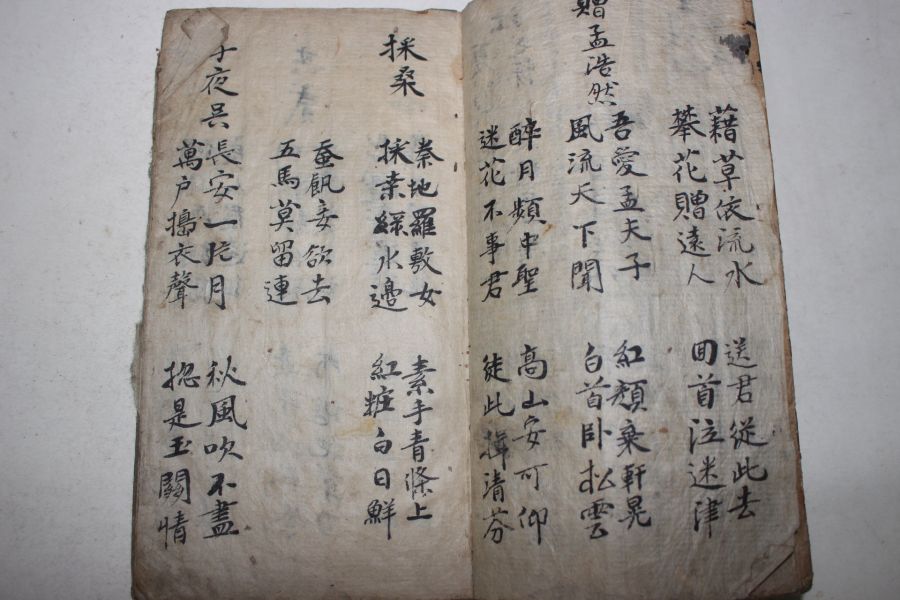 藉草依流水
攀花贈遠人
送君從此去
囬首泣迷津
贈孟浩然
吾愛孟夫子
風流天下聞
紅顏棄軒晃
白首卧松雲
醉月頻中聖
迷花不事君
高山安可仰
徒此揖清芬
採桑
秦地羅敷女
採桒綠水邊
素手青條上
紅粧白日鮮
蚕飢妾欲去
五馬莫留連
子夜吳
長安一片月
萬户擣衣聲
秋風吹不盡
捴是玉關情